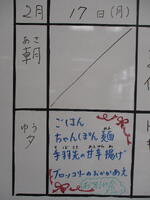 2月 17日(月)
あさ
朝
ゆう
夕
ごはん
ちゃんぽん麺
てばさき あまから あ
手羽先の甘辛揚げ
ブロッコリーのおかかあえ